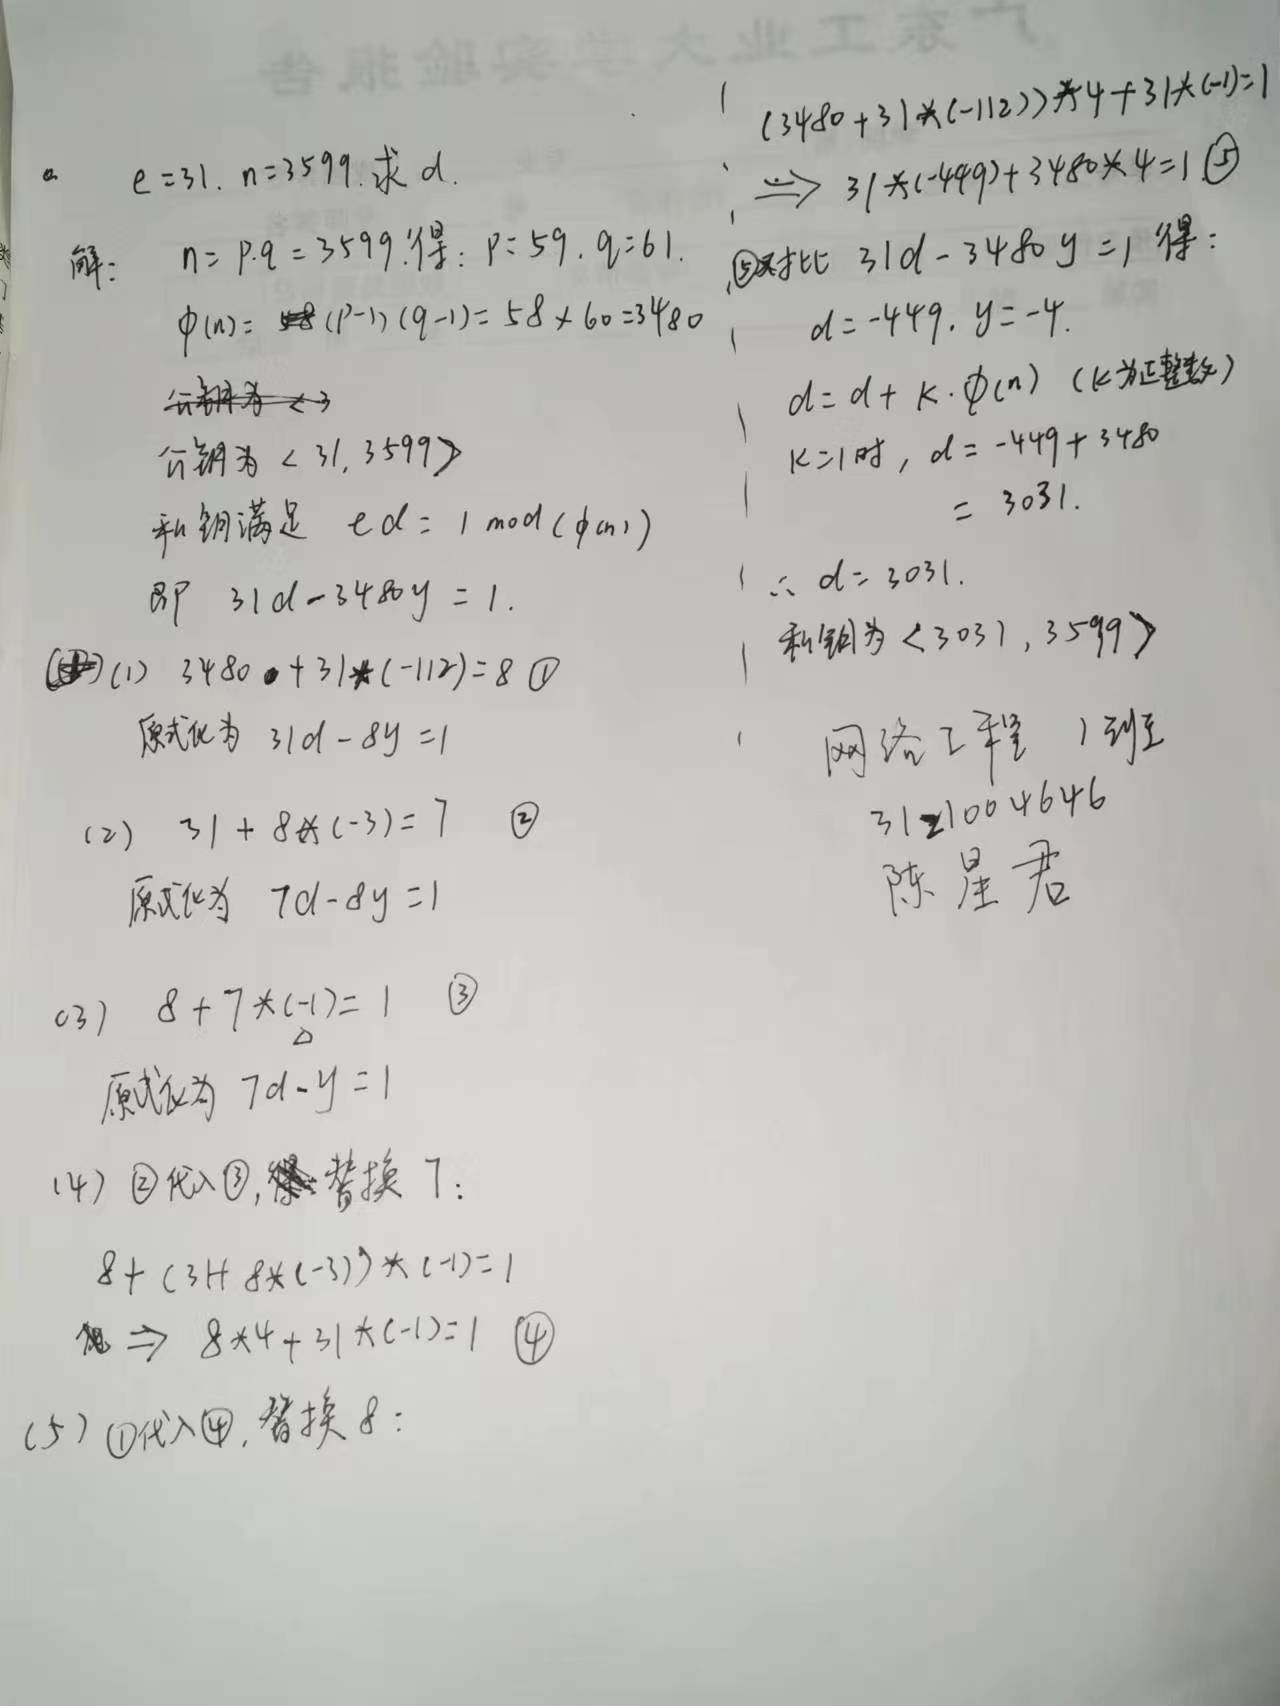 e=31. n=3599.求d.
解: n=p.q=3599.得: p=59. q=61.
φ(n)= (p-1)(q-1)=58×60=3480
公钥为<31,3599>
私钥满足 ed=1 mod(φ(n))
即 31d-3480y=1.
(1) 3480+31*(-112)=8 ①
原式化为 31d-8y=1
(2) 31+8*(-3)=7 ②
原式化为 7d-8y=1
(3) 8+7*(-1)=1 ③
原式化为 7d-y=1
(4) ②代入③, 替换7:
8+(31+8*(-3))*(-1)=1
⇒ 8*4+31*(-1)=1 ④
(5) ①代入④, 替换8:
(3480+31*(-112))*4+31*(-1)=1
⇒ 31*(-449)+3480*4=1 ⑤
⑤对比 31d-3480y=1 得:
d=-449. y=-4.
d=d+k.φ(n) (k为正整数)
k=1时, d=-449+3480
=3031.
∴ d=3031.
私钥为<3031,3599>
网络工程 1班
3121004646
陈星君
广东工业大学实验报告